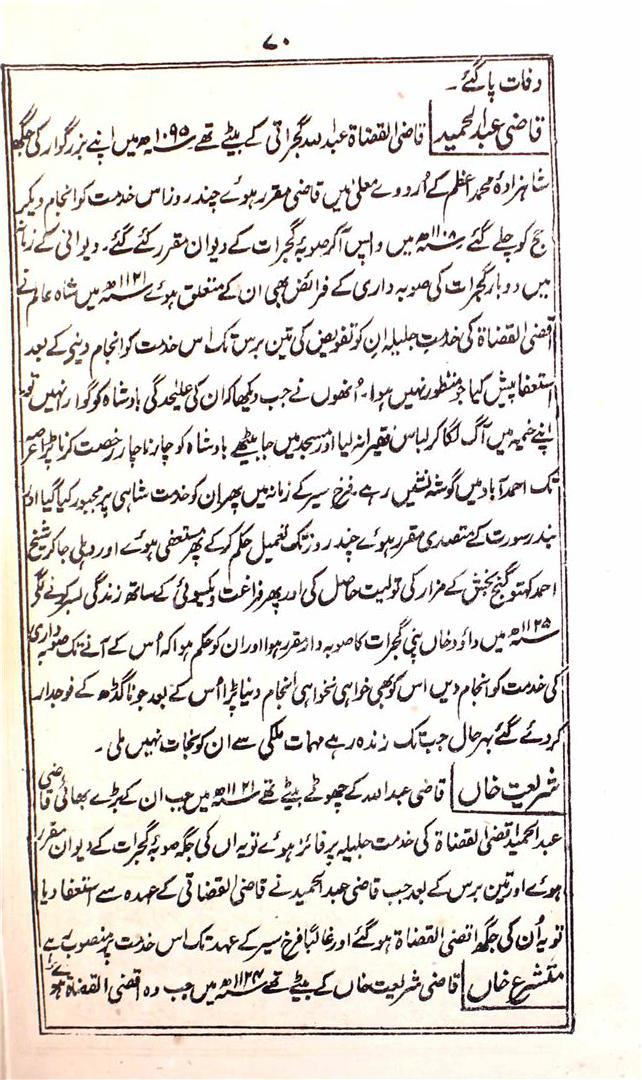 ۷۰
وفات پا گئے۔
قاضی عبدالحمید قاضی القضاۃ عبداللہ گجراتی کے بیٹے تھے ۱۰۹۵ھ میں اپنے بزرگوار کی جگہ
شاہزادۂ محمد اعظم کے اُردوے معلیٰ میں قاضی مقرر ہوے چند روز اس خدمت کو انجام دیکر
حج کو چلے گئے ۱۱۰۸ھ میں واپس آکر صوبۂ گجرات کے دیوان مقرر کئے گئے۔ دیوانی کے زمانہ
میں دو بار گجرات کی صوبہ داری کے فرائض بھی ان کے متعلق ہوے ۱۱۲۱ھ میں شاہ عالم نے
اقضی القضاۃ کی خدمت جلیلہ ان کو تفویض کی تین برس تک اس خدمت کو انجام دینے کے بعد
استعفا پیش کیا جو منظور نہیں ہوا۔ اُنھوں نے جب دیکھا کہ ان کی علیحدگی بادشاہ کو گوارا نہیں تو
اپنے خیمہ میں آگ لگا کر لباس فقیرانہ لیا اور مسجد میں جا بیٹھے بادشاہ کو چار ناچار رخصت کرنا پڑا عرصہ
تک احمدآباد میں گوشہ نشیں رہے۔ فرخ سیر کے زمانہ میں پھر ان کو خدمت شاہی پر مجبور کیا گیا اور
بندر سورت کے متصدی مقرر ہوے چند روز تک تعمیل حکم کرکے پھر مستعفی ہوے اور دہلی جاکر شیخ
احمد کھتو گنج بخش کے مزار کی تولیت حاصل کی اور پھر فراغت و یکسوئی کے ساتھ زندگی بسر کرنے لگے
۱۱۲۵ھ میں داؤد خاں پنی گجرات کا صوبہ دار مقرر ہوا اور ان کو حکم ہوا کہ اُس کے آنے تک صوبہ داری
کی خدمت کو انجام دیں اس کو بھی خواہی نخواہی انجام دینا پڑا اُس کے بعد جونا گڈھ کے فوجدار
کردئے گئے بہرحال جب تک زندہ رہے مہمات ملکی سے ان کو نجات نہیں ملی۔
شریعت خاں قاضی عبداللہ کے چھوٹے بیٹے تھے ۱۱۲۱ھ میں جب ان کے بڑے بھائی قاضی
عبدالحمید اقضی القضاۃ کی خدمت جلیلہ پر فائز ہوے تو یہ اں کی جگہ صوبۂ گجرات کے دیوان مقرر
ہوے اور تین برس کے بعد جب قاضی عبدالحمید نے قاضی القضاتی کے عہدہ سے استعفا دیا
تو یہ اُن کی جگہ اقضی القضاۃ ہو گئے اور غالباً فرخ سیر کے عہد تک اس خدمت پر منصوب رہے
متشرع خاں قاضی شریعت خاں کے بیٹے تھے ۱۱۲۴ھ میں جب وہ اقضی القضاۃ ہوے